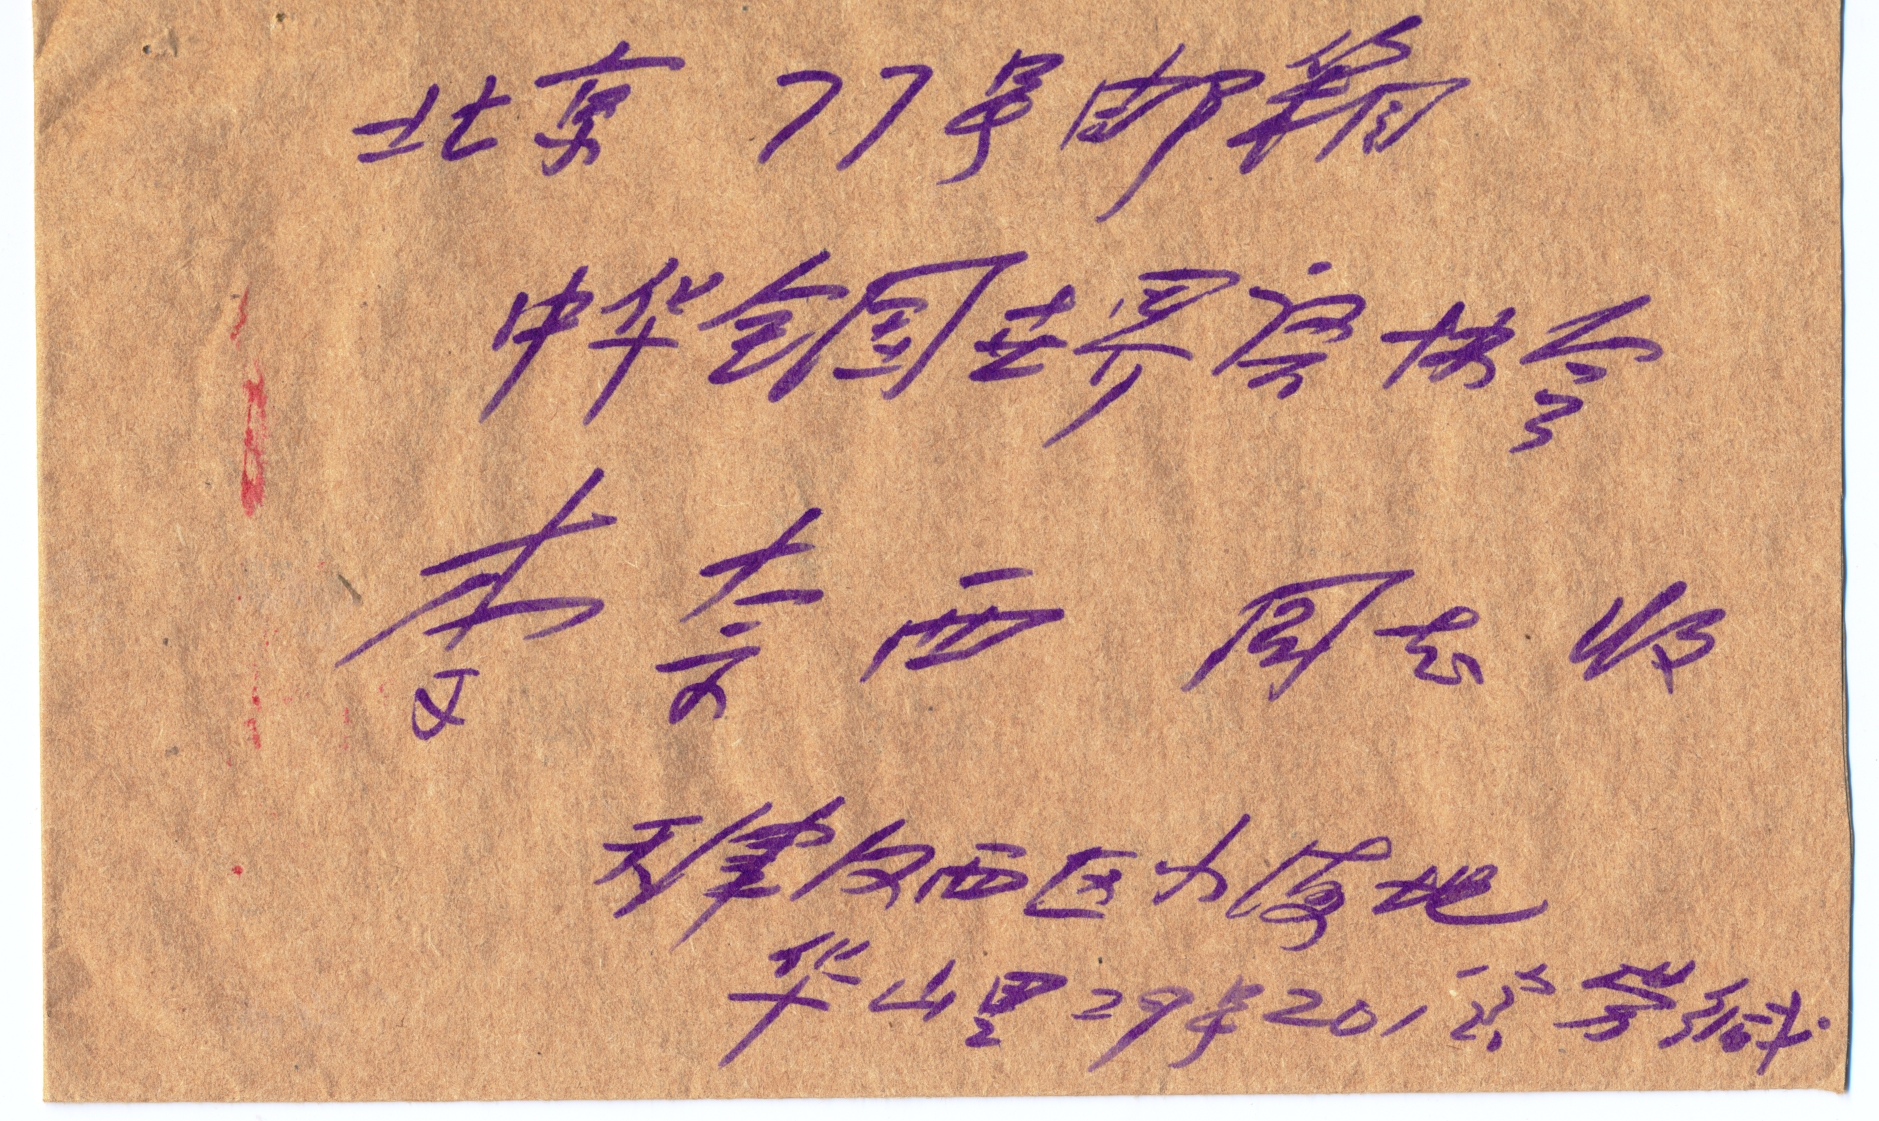 北京 77号邮箱
中华全国世界语协会
李奈西 同志收
天津河西区大沽地
华山里29号201 劳缄